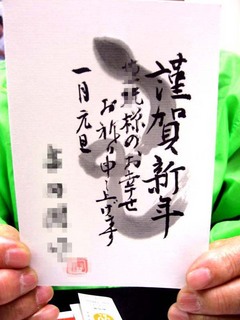 謹賀新年
様のお幸せ
お祈り申し上げます
一月元旦